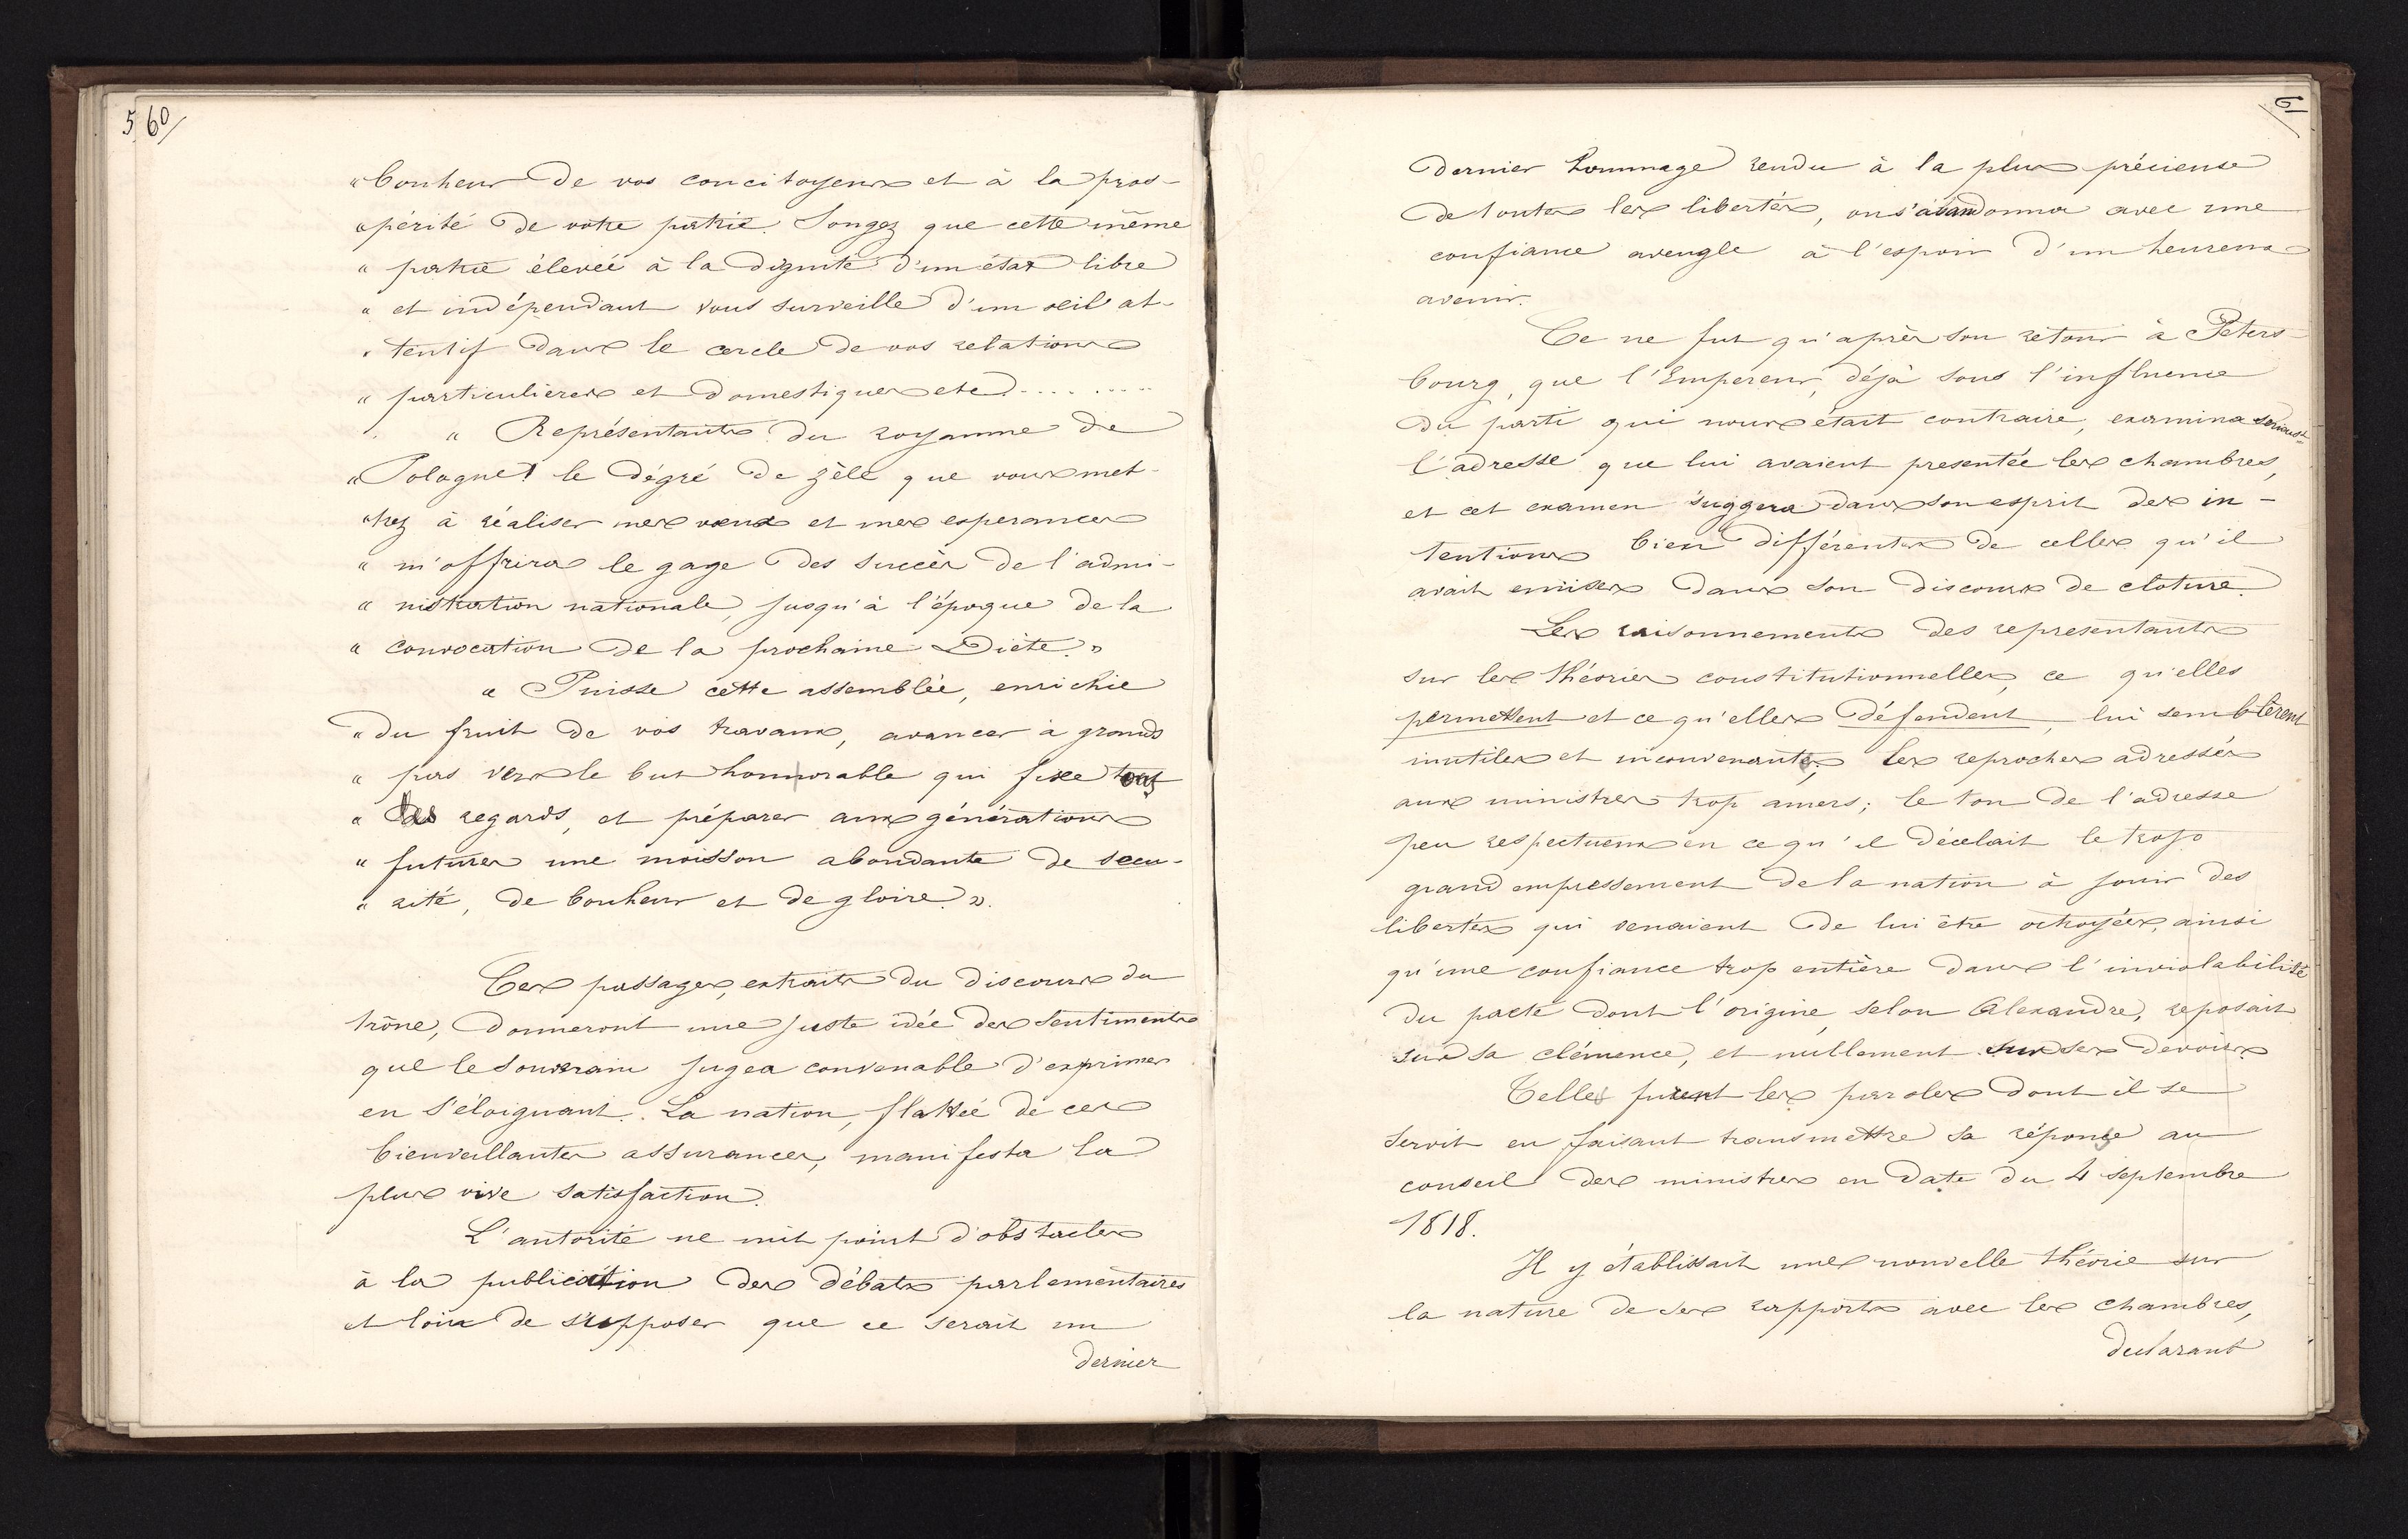 5 60/
" bonheur de vos concitoyens et à la pros-
" périté de votre patrie. Songez que cette même
" patrie élevée à la dignité d'un état libre
" et indépendant vous surveille d'un œil at-
" tentif dans le cercle de vos relations
" particulières et domestiques etc.........
" Représentants du royaume de
" Pologne! le dégré de zèle que vous met-
" trez à réaliser mes vœux et mes esperances
" m'offrira le gage des succès de l'admi-
" nistration nationale, jusqu'à l'époque de la
" convocation de la prochaine Diète."
" Puisse cette assemblée, enrichie
" du fruit de vos travaux, avancer à grands
" pas vers le but honnorable qui fixe tous
" les regards, et préparer aux générations
" futures une moisson abondante de secu-
" rité, de bonheur et de gloire."
Ces passages, extraits du discours du
trône, donneront une juste idée des sentiments
que le souverain jugea convenable d'exprimer
en s'éloignant. La nation, flattée de ces
bienveillantes assurances, manifesta la
plus vive satisfaction.
L'autorité ne mit point d'obstacles
à la publication des débats parlementaires
et loin de supposer que ce serait un
dernier
61
dernier hommage rendu à la plus précieuse
de toutes les libertés, on s'abandonna avec une
confiance aveugle à l'espoir d'un heureux
avenir.
Ce ne fut qu'après son retour à Peters-
bourg, que l'Empereur, déjà sous l'influence
du parti qui nous était contraire, examina serieust
l'adresse que lui avaient presentée les chambres,
et cet examen suggera dans son esprit des in-
tentions bien différentes de celles qu'il
avait emises dans son discours de cloture.
Les raisonnements des representants
sur les théories constitutionnelles, ce qu'elles
permettent et ce qu'elles défendent, lui semblèrent
inutiles et inconvenants; les reproches adressés
aux ministres trop amers; le ton de l'adresse
peu respectueux en ce qu'il décelait le trop
grand empressement de la nation à jouir des
libertés qui venaient de lui être octroyées, ainsi
qu'une confiance trop entière dans l'inviolabilité
du pacte dont l'origine, selon Alexandre, reposait
sur sa clémence, et nullement sur ses devoirs
Telles furent les paroles dont il se
servit en faisant transmettre sa réponse au
conseil des ministres en date du 4 septembre
1818.
Il y établissait une nouvelle théorie sur
la nature de ses rapports avec les chambres,
declarant